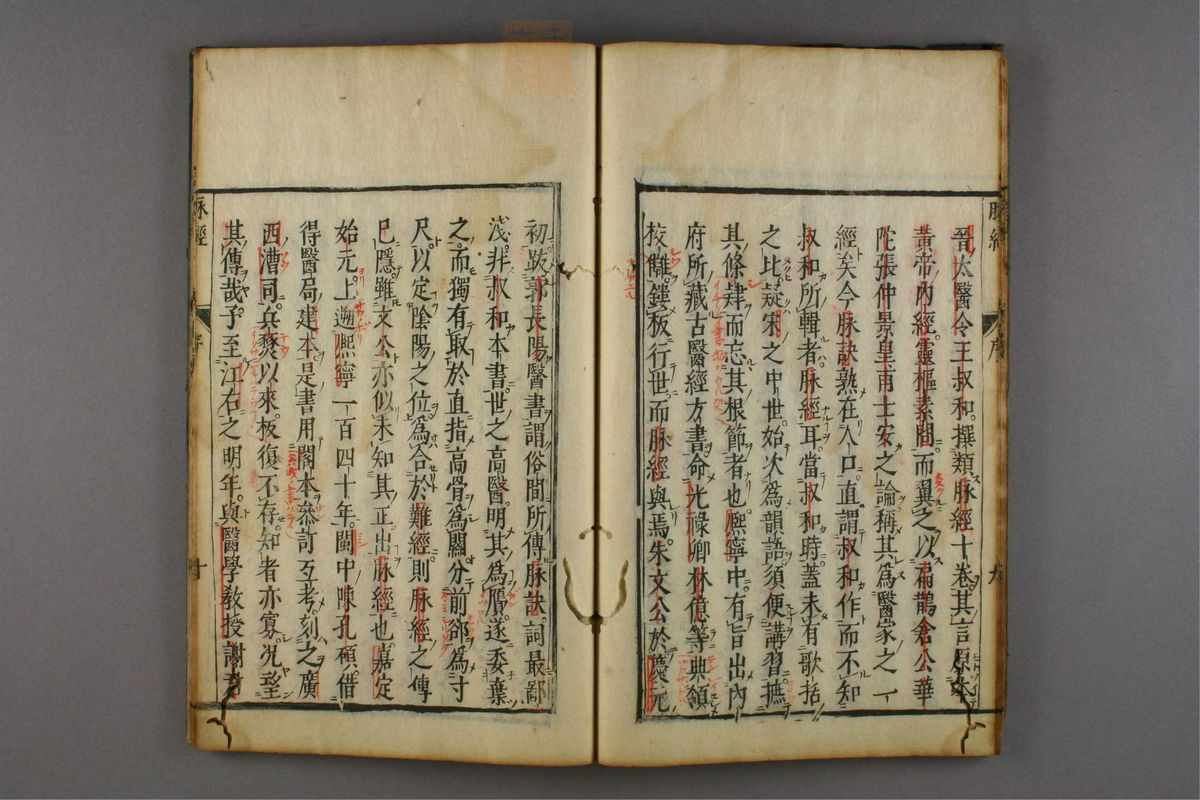 晉太醫令王叔和撰類脉經十卷其言原本
黃帝內經靈樞素問而翼之以扁鵲倉公華
陀張仲景皇甫士安之論稱其爲醫家之一
經矣今脉訣熟在人口直謂叔和作而不知
叔和所輯者脉經耳當叔和時蓋未有歌括
之比疑宋之中世始次爲韻語須便講習摭
其條肄而忘其根節者也熈寧中有旨出內
府所藏古醫經方書命光祿卿林億等典領
校讎鏤板行世而脉經與焉朱文公於慶元
初跋郭長陽醫書謂俗間所傳脉訣詞最鄙
淺非叔和本書世之高醫明其爲贋遂委棄
之而獨有取於直指高骨爲關分前郤爲寸
尺以定陰陽之位爲合於難經則脉經之傳
已隱雖文公亦似未知其正出脉經也嘉定
始元上遡熈寧一百四十年閩中陳孔碩借
得醫局建本是書用閣本叅訂互考刻之廣
西漕司兵燹以來板復不存知者亦寡况望
其傳哉予至江右之明年與醫學教授謝
脉經
序
九
脉經
序
十